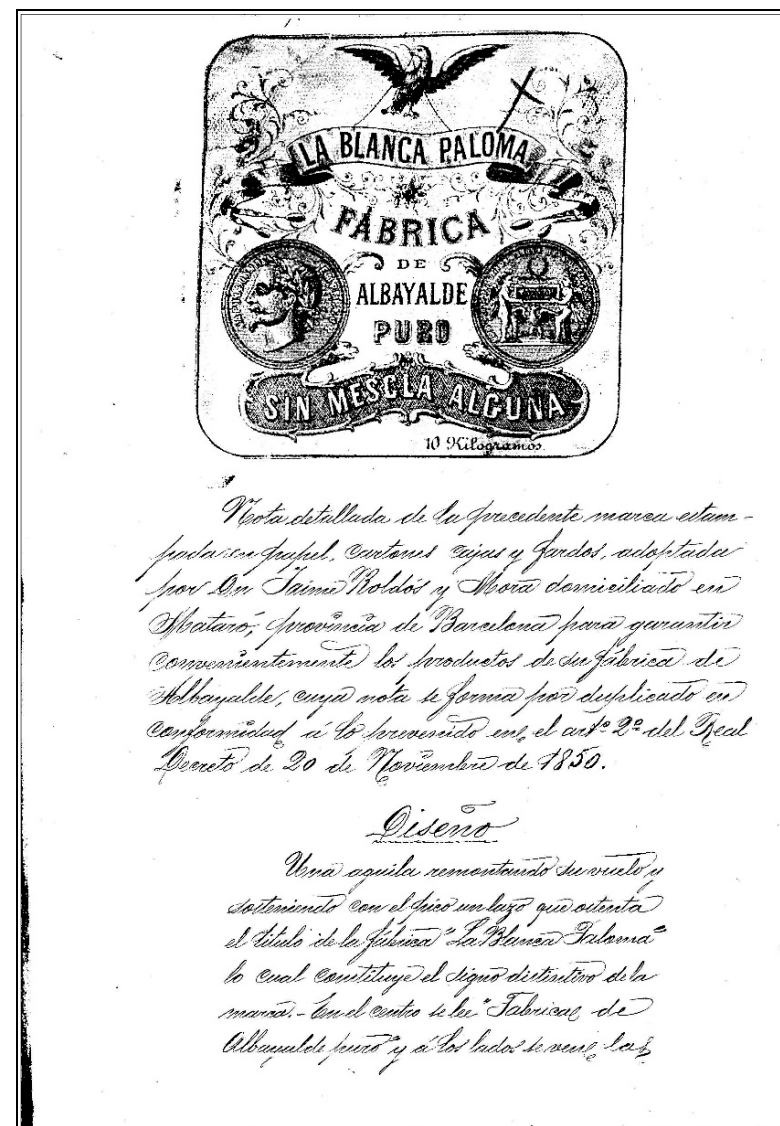 LA BLANCA PALOMA
FÁBRICA
DE
ALBAYALDE
PURO
SIN MESCLA ALGUNA
10 Kilogramos.
Nota detallada de la precedente marca estam-
pada en papel, cartones cajas y fardos, adoptada
por Dn Jaime Roldós y Mora domiciliado en
Mataró, provincia de Barcelona para garantir
convenientemente los productos de su fábrica de
Albayalde, cuya nota se forma por duplicado en
conformidad á lo prevenido en el artº 2º del Real
Decreto de 20 de Noviembre de 1850.
Diseño
Una aguila remontando su vuelo y
sosteniendo con el pico un lazo que ostenta
el titulo de la fábrica "La Blanca Paloma"
lo cual constituye el signo distintivo de la
marca.- En el centro se lee "Fabrica de
Albayalde puro" y á los lados se ven las